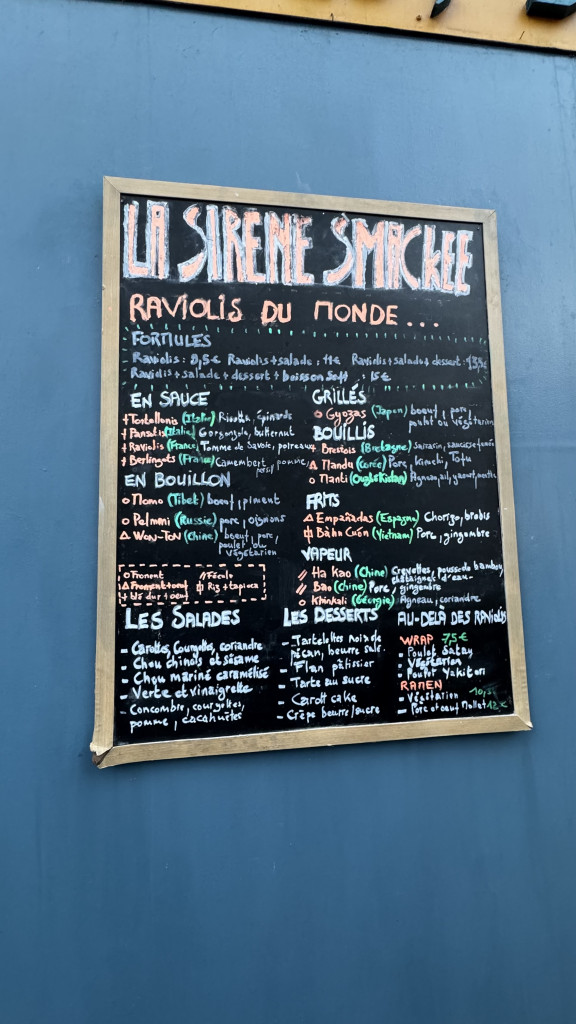 LA SIRENE SMACKEE
RAVIOLIS DU MONDE...
FORMULES
Raviolis : 8,5€ Raviolis + salade : 11€ Raviolis + salade + dessert : 13,5€
Raviolis + salade + dessert + boisson soft : 15€
EN SAUCE
Tortellonis (Italie) Ricotta, Epinards
Pansotis (Italie) Gorgonzola, butternut
Raviolis (France) Tomme de Savoie, poireaux
Berlingots (France) Camembert, pomme, persil
EN BOUILLON
o Momo (Tibet) boeuf, piment
o Pelmeni (Russie) porc, oignons
△ Won-Ton (Chine) boeuf, porc,
poulet ou
végétarien
o Froment // Fécule
△ Froment + oeuf Riz + tapioca
+ blé dur + oeuf
GRILLÉS
o Gyozas (Japon) boeuf, porc,
poulet ou végétarien
BOUILLIS
Brestois (Bretagne) Sarrasin, saucisse fumée
△ Mandu (Corée) Porc, Kimchi, Tofu
o Manti (Ouzbékistan) Agneau, ail, yaourt, menthe
FRITS
△ Empañadas (Espagne) Chorizo, brebis
Bahn Cuón (Vietnam) Porc, gingembre
VAPEUR
// Ha Kao (Chine) Crevettes, pousse de bambou
châtaignes d'eau
// Bao (Chine) Porc, gingembre
o Khinkali (Géorgie) Agneau, coriandre
LES SALADES
- Carottes, Courgettes, coriandre
- Chou chinois et sésame
- Chou mariné caramélisé
- Verte et vinaigrette
- Concombre, courgettes,
pomme, cacahuètes
LES DESSERTS
- Tartelettes noix de
pécan, beurre salé
- Flan pâtissier
- Tarte au sucre
- Carott cake
- Crêpe beurre/sucre
AU-DELÀ DES RAVIOLIS
WRAP 7,5€
- Poulet Satay
- Végétarien
- Poulet Yakitori
RAMEN
- Végétarien
- Porc et oeuf Mollet 12€